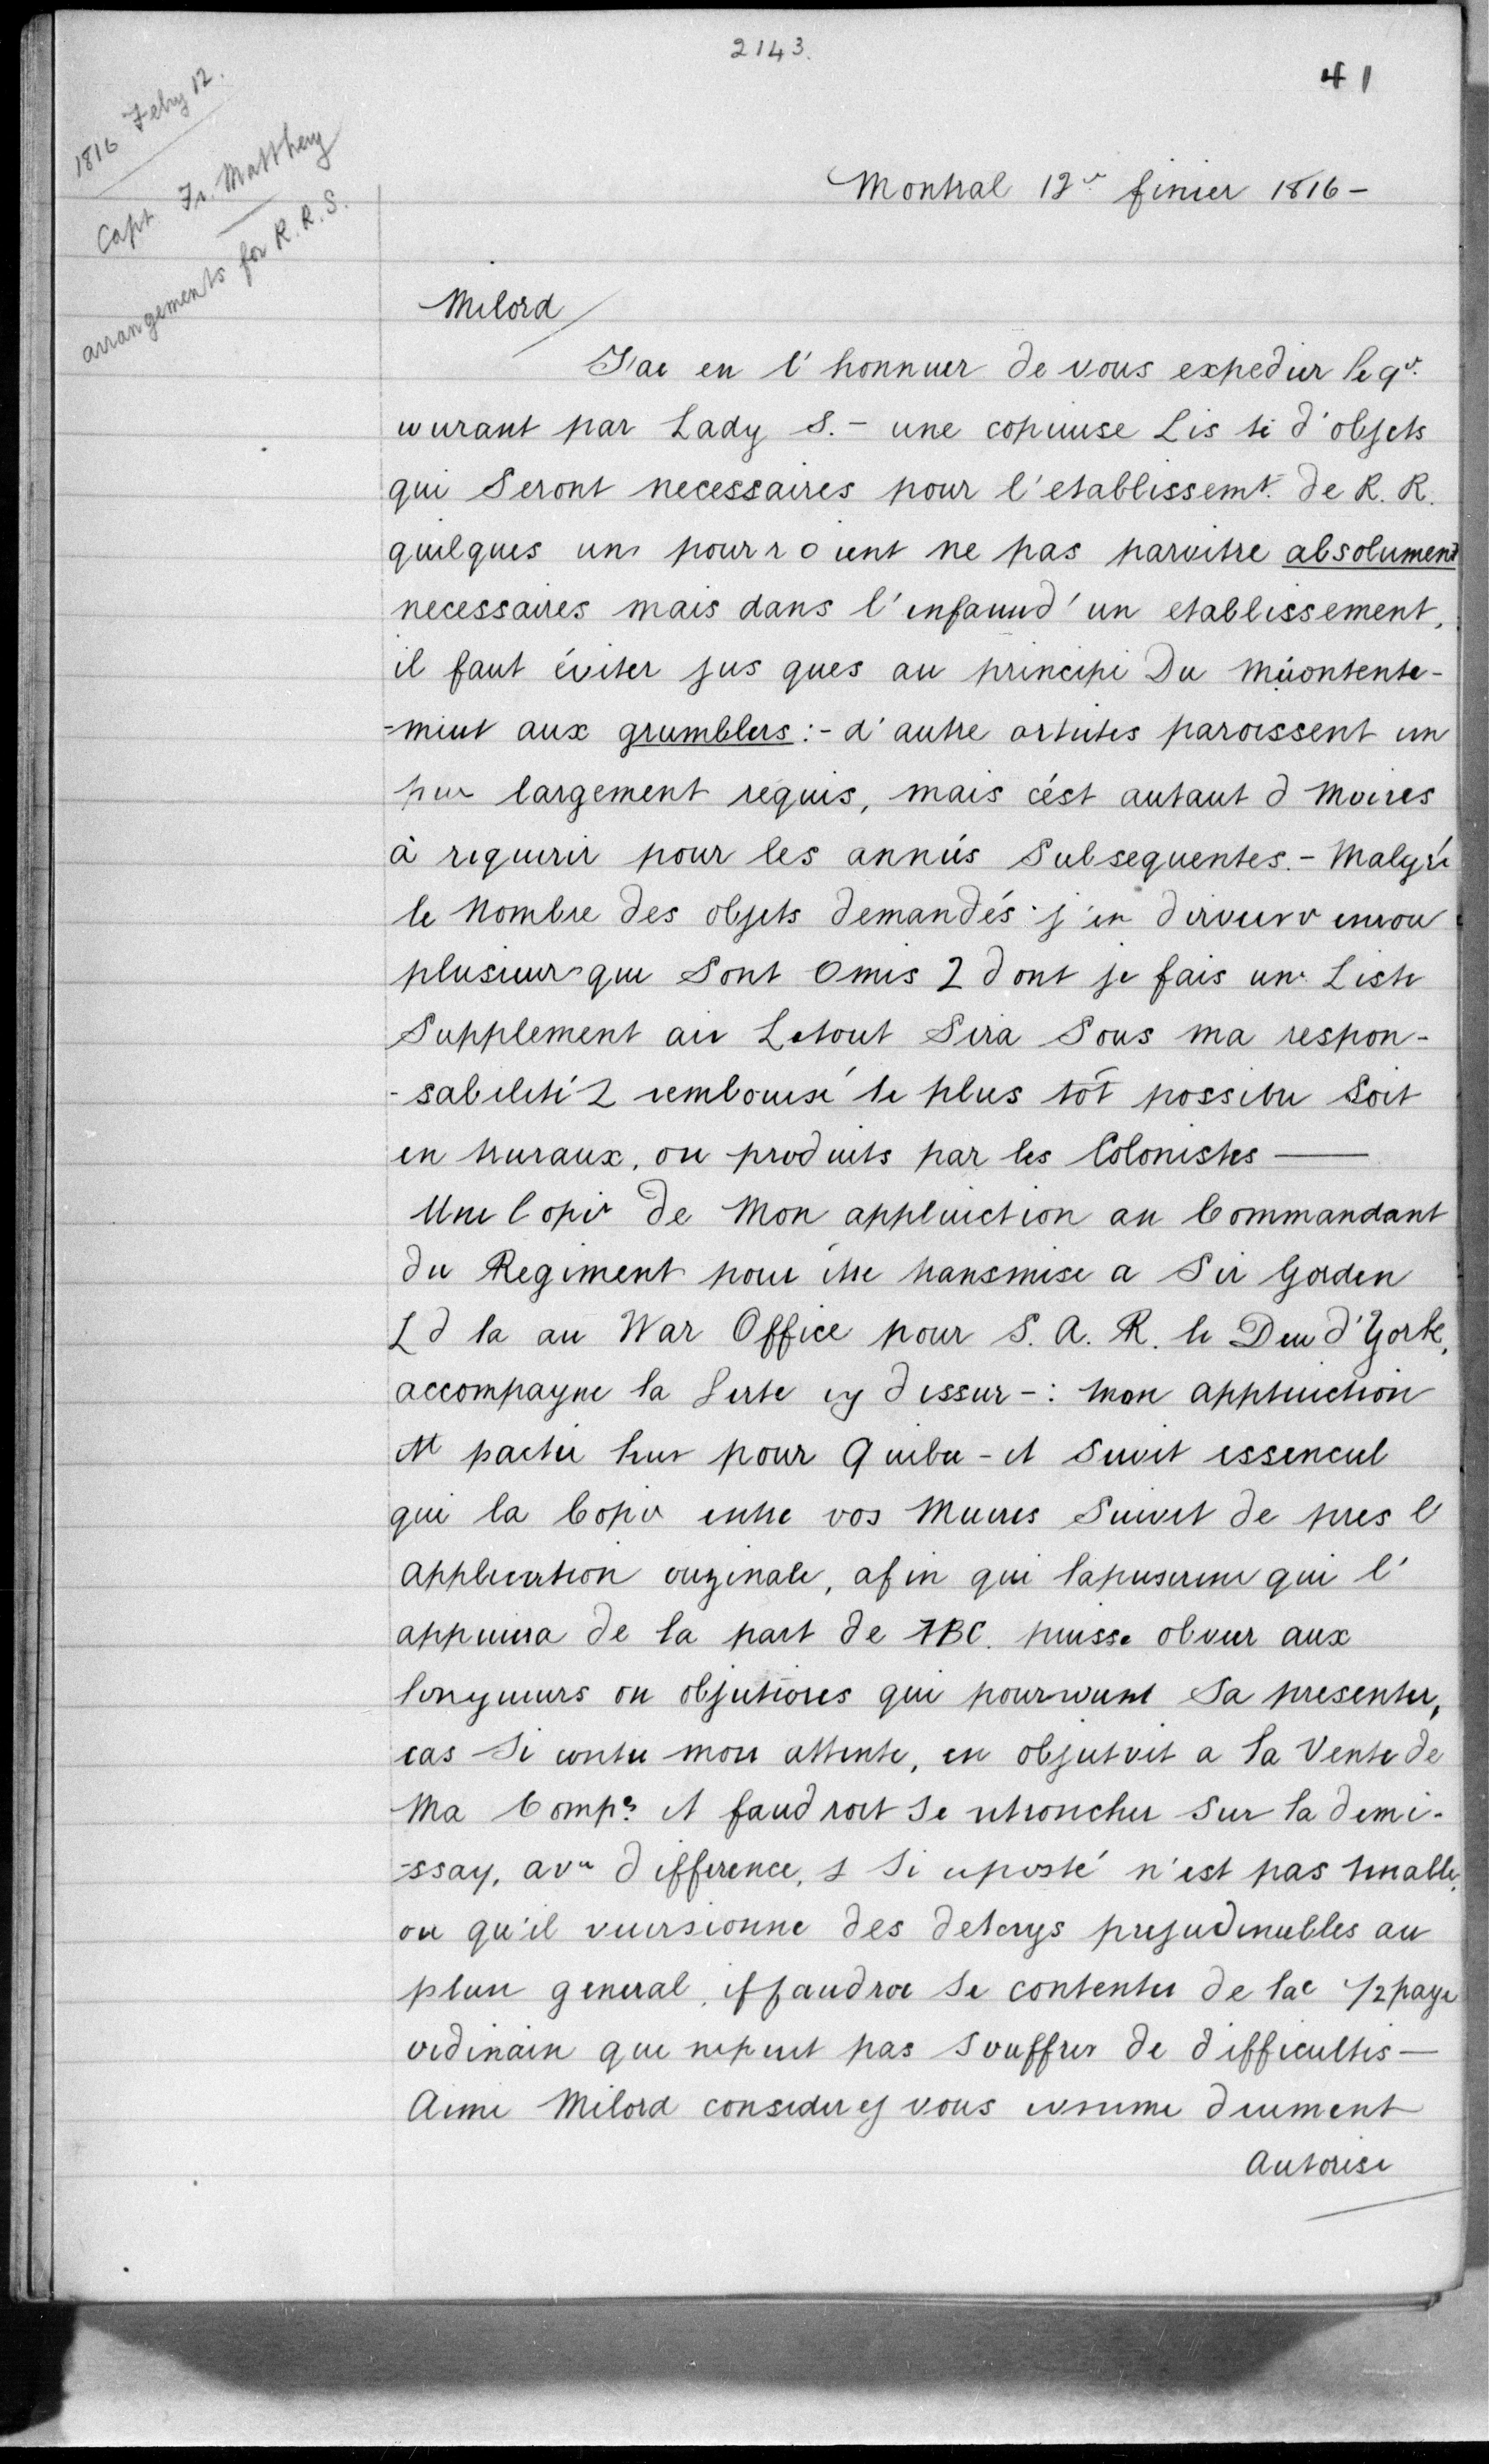 2143.
41
1816 Febry 12.
Capt. Fr. Matthey
arrangements for R. R. S.
Montral 12e finier 1816 -
Milord
J'ae en l'honnuer de vous expedier le 9e.
wurant par Lady S. - une copiuuse Lis te d'objets
qui Seront necessaires pour l'etablissemt. de R. R.
quelques uns pourroient ne pas paroitre absolument
necessaires mais dans l'enfauud'un etablissement,
il faut éviter jus ques au principe Du Mécontente-
-ment aux grumblers :- d'autre artutes paroissent un
peu largement requis, mais cést autaut d moires
à requerir pour les années Subsequentes. - Malgré
le Nombre des objets demandés j'en dirveuv enrou
plusieurs que Sont Omis 2 dont je fais une Liste
Supplement aie Letout Sera Sous ma respon-
-sabileté 2 rembourse le plus tôt possebu Soit
en truraux, ou produits par les Colonistes ——
Une Copie de Mon appluiction au Commandant
du Regiment pour être transmise a Sir Gorden
L d la au War Office pour S. A. R. le Duu d'York,
accompagne la Serte cy dessur -: Mon appluiction
et partie hur pour Quibu - et Seuit essencul
que la Copie entre vos Mueres Suivit de pres l'
application ouginale, afin que lapuserene qui l'
appuiera de la part de ABC. puisse obveer aux
longueurs ou objutiores qui pourwunt Sa presenter,
cas Si contre mon attente, en objutoit a la Vente de
Ma Compe. et faudroit Se retroncher Sur la demi-
-ssay, ave difference, & Si uposté n'est pas tenable,
ou qu'il vuersionne des delays prejudenubles au
plure general, if faudroe Se contenter de lae 1/2 paye
ordinain que nepeut pas Souffrer de difficultés —
Aime Milord considerez vous comme duement
Autorise